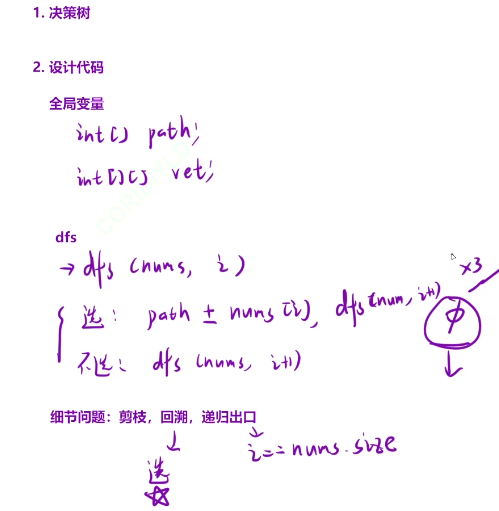 1. 决策树
2. 设计代码
全局变量
int[] path;
int[][] ret;
dfs
→ dfs (nums, i)
×3
选: path ± nums[i], dfs(num, i+1)
φ
不选: dfs (nums, i+1)
细节问题：剪枝，回溯，递归出口
选
i == nums.size